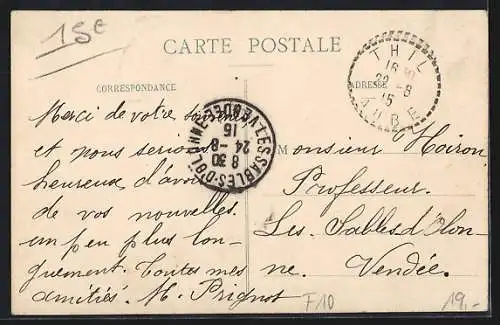 15e
CARTE POSTALE
CORRESPONDANCE
ADRESSE
THIL
16
22 -8
15
AUBE
LES SABLES-D'OLONNE
VENDÉE
8 30
24 -8
16
Merci de votre
et nous serions
heureux d'avoir
de vos nouvelles
un peu plus lon-
guement. Toutes mes
amitiés. M. Prignot
Monsieur Hoiron
Professeur.
Les Sables d'Olon-
ne. Vendée.
F10
19,-